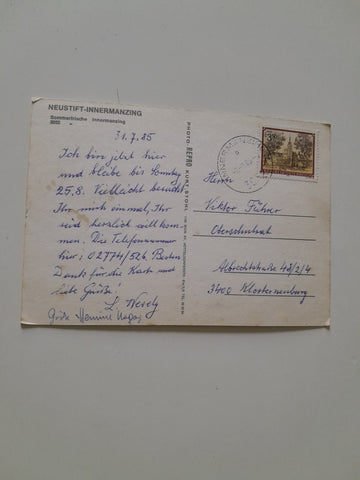 NEUSTIFT-INNERMANZING
Sommerfrische Innermanzing
31.7.85
Ich bin jetzt hier
und bleibe bis Sonntag
25,8. Vielleicht besucht
Ihr mich einmal, Ihr
seid herzlich willkom-
men. Die Telefonnummer
hier: 02774/526. Besten
Dank für die Karte und
liebe Grüße!
Grüße
PHOTO REPRO KURT STOHL
INNERMANZING
Herrn
Viktor Führer
Oberschulrat
Albrechtstraße 48/2/4
3400 Klosterneuburg